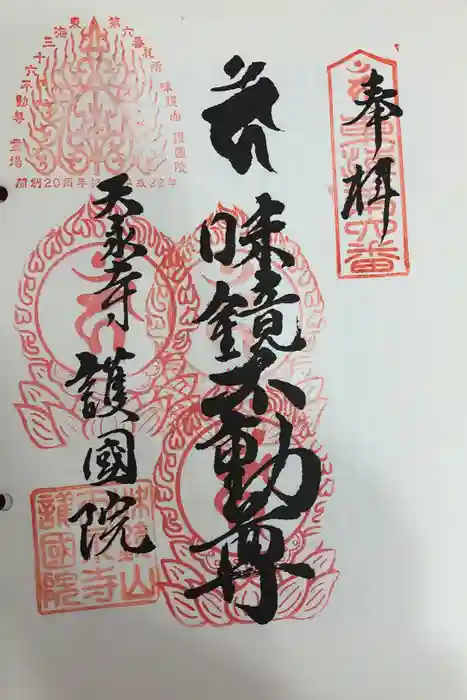 奉拝
味鏡不動尊
天永寺 護國院
東海三十六不動尊霊場
第六番札所 味鏡山 護國院
開創20周年
成22年
味鏡山
天永寺
護國院